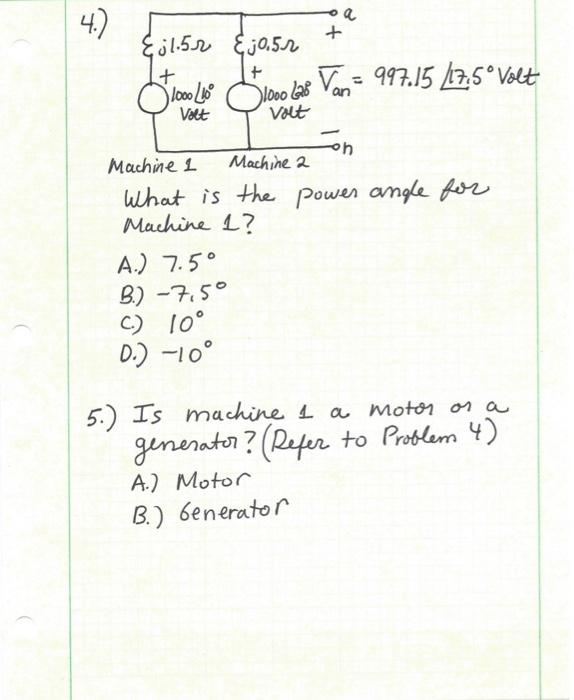 4.)
a
j1.5Ω
j0.5Ω
+
+
+
1000∠10° Volt
1000∠20° Volt
V̅an = 997.15 ∠17.5° Volt
−
n
Machine 1
Machine 2
What is the power angle for
Machine 1?
A.) 7.5°
B.) -7.5°
C.) 10°
D.) -10°
5.) Is machine 1 a motor or a
generator? (Refer to Problem 4)
A.) Motor
B.) Generator